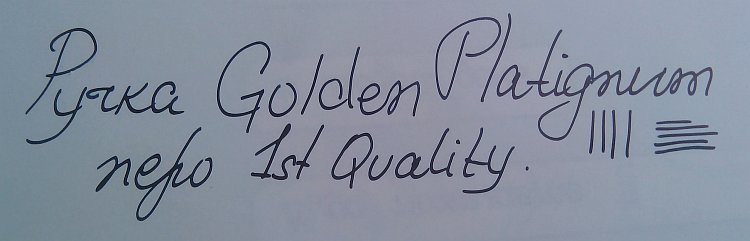 Ручка Golden Platignum
перо 1st Quality.